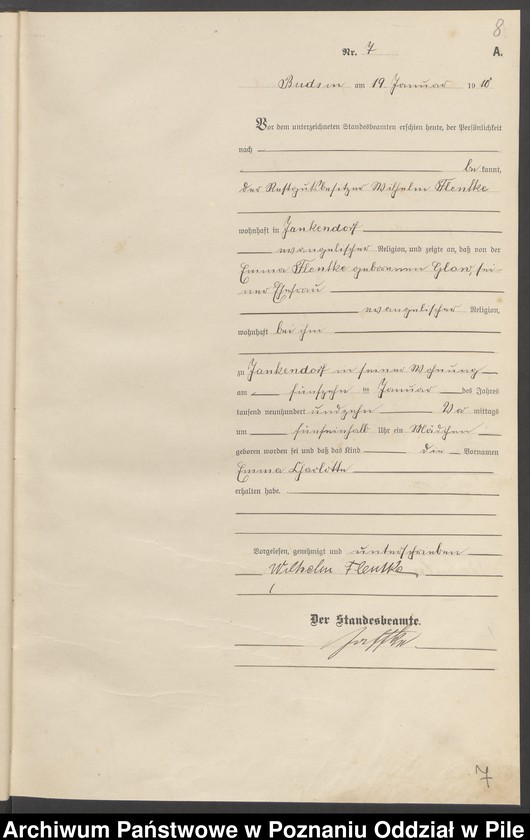 8
Nr. 7
A.
Budsin am 19 Januar 1910
Vor dem unterzeichneten Standesbeamten erschien heute, der Persönlichkeit
nach
be kannt,
der Restgutsbesitzer Wilhelm Flentke
wohnhaft in Jankendorf
evangelischer Religion, und zeigte an, daß von der
Emma Flentke geborenen Glow, sei-
ner Ehefrau
evangelischer Religion,
wohnhaft bei ihm
zu Jankendorf in seiner Wohnung
am fünfzehn ten Januar des Jahres
tausend neunhundert undzehn Vor mittags
um fünfeinhalb Uhr ein Mädchen
geboren worden sei und daß das Kind die Vornamen
Emma Charlotte
erhalten habe.
Vorgelesen, genehmigt und unterschrieben
Wilhelm Flentke
Der Standesbeamte.
7
Archiwum Państwowe w Poznaniu Oddział w Pile